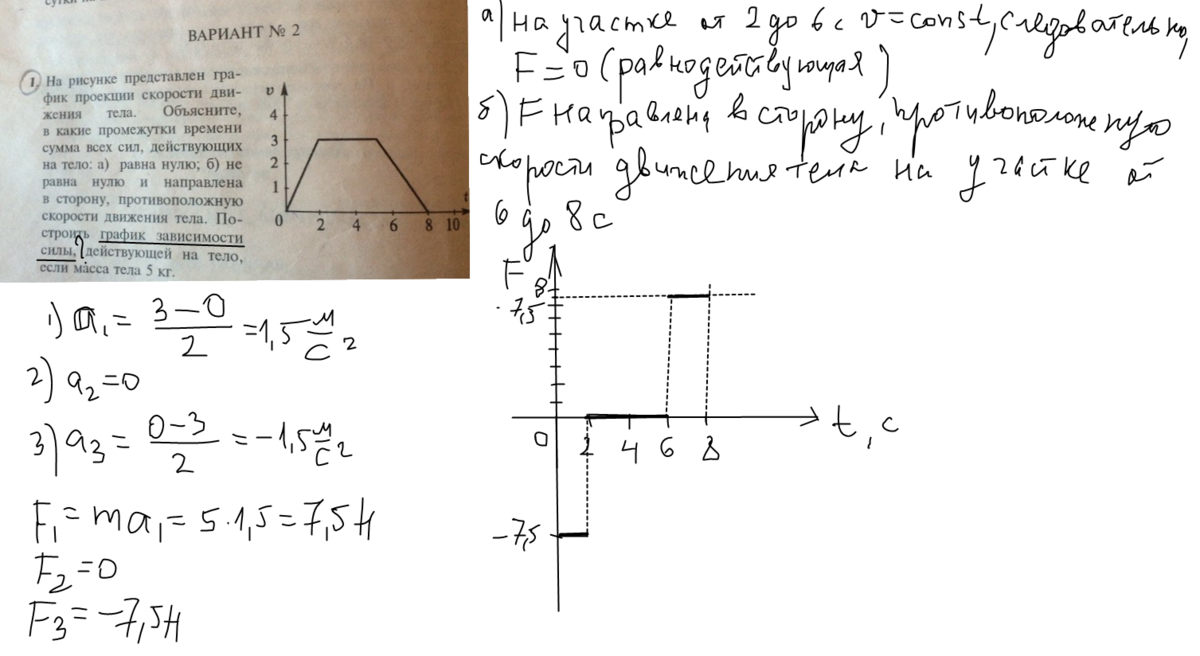 ВАРИАНТ № 2
1. На рисунке представлен гра-
фик проекции скорости дви-
жения тела. Объясните,
в какие промежутки времени
сумма всех сил, действующих
на тело: а) равна нулю; б) не
равна нулю и направлена
в сторону, противоположную
скорости движения тела. По-
строить график зависимости
силы,? действующей на тело,
если масса тела 5 кг.
v
4
3
2
1
0 2 4 6 8 10 t
а) на участке от 2 до 6 с v = const, следовательно,
F = 0 (равнодействующая)
б) F направлена в сторону, противоположную
скорости движения тела на участке от
6 до 8 с
1) a₁ = 3 – 0 / 2 = 1,5 м/с²
2) a₂ = 0
3) a₃ = 0 – 3 / 2 = – 1,5 м/с²
F₁ = ma₁ = 5 · 1,5 = 7,5 Н
F₂ = 0
F₃ = – 7,5 Н
F
8
7,5
0 2 4 6 8 t, c
– 7,5